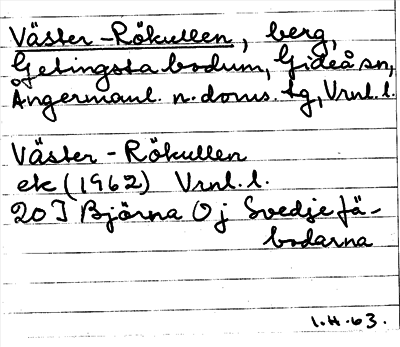 Väster-Rökullen, berg,
Getingsta bodum, Gideå sn,
Ångermanl. n. doms. tg, Vrnl. l.
Väster-Rökullen
ek (1962) Vrnl. l.
20 I Björna O j Svedje fä-
bodarna
1.H.63.